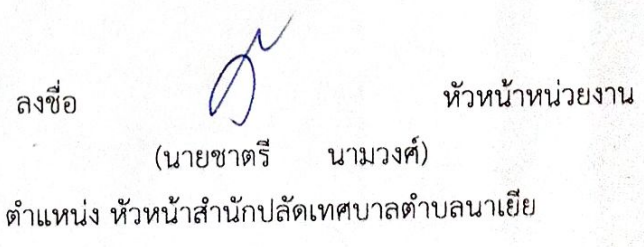 ลงชื่อ หัวหน้าหน่วยงาน
(นายชาตรี นามวงศ์)
ตำแหน่ง หัวหน้าสำนักปลัดเทศบาลตำบลนาเยีย